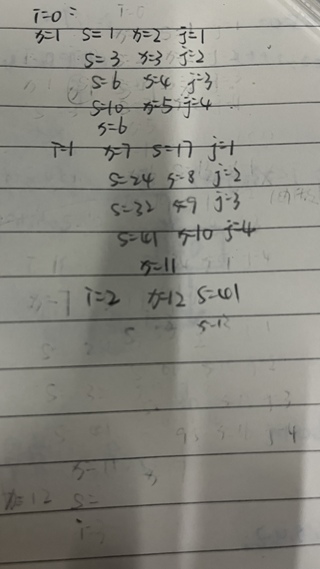 i=0:
x=1 s=1 x=2 j=1
s=3 x=3 j=2
s=6 x=4 j=3
s=10 x=5 j=4
x=6
i=1 x=7 s=17 j=1
s=24 x=8 j=2
s=32 x=9 j=3
s=41 x=10 j=4
x=11
i=2 x=12 s=41
x=12 s=